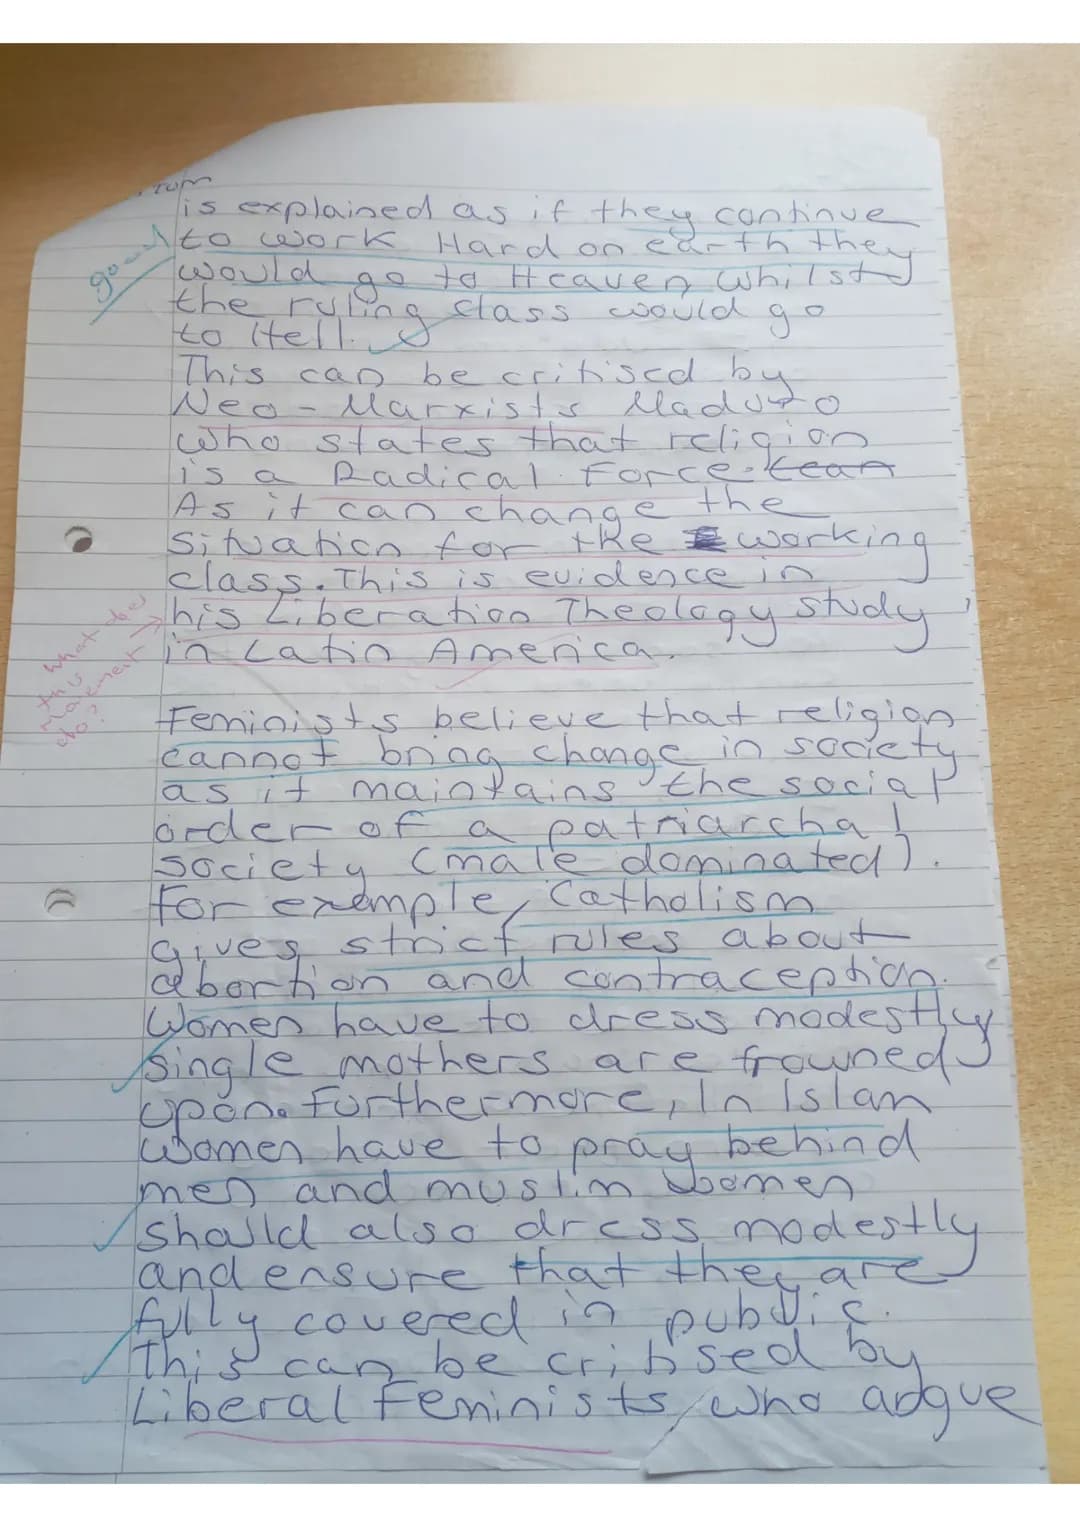 is explained as if they continue
good
to work Hard on earth they
would go to Heaven whilst
the ruling class would go
to Hell.
This can be critised by
Neo-Marxists Maduro
who states that religion
is a Radical Force.
As it can change the
situation for the working
class. This is evidence in
his Liberation Theology study
in Latin America.
what does
this
movement
do?
Feminists believe that religion
cannot bring change in society
as it maintains the social
order of a patriarchal
society (male dominated).
For example, Catholism
gives strict rules about
abortion and contraception.
Women have to dress modestly
single mothers are frowned
upon. Furthermore, In Islam
women have to pray behind
men and muslim women
should also dress modestly
and ensure that they are
fully covered in public.
This can be critised by
Liberal Feminists, who argue